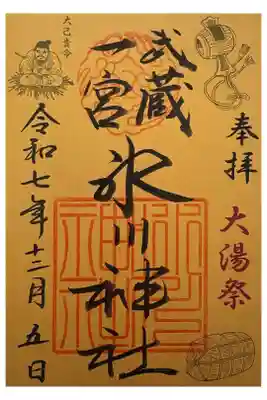 奉拝
大湯祭
武蔵
一宮
氷川神社
大己貴命
令和七年十二月五日